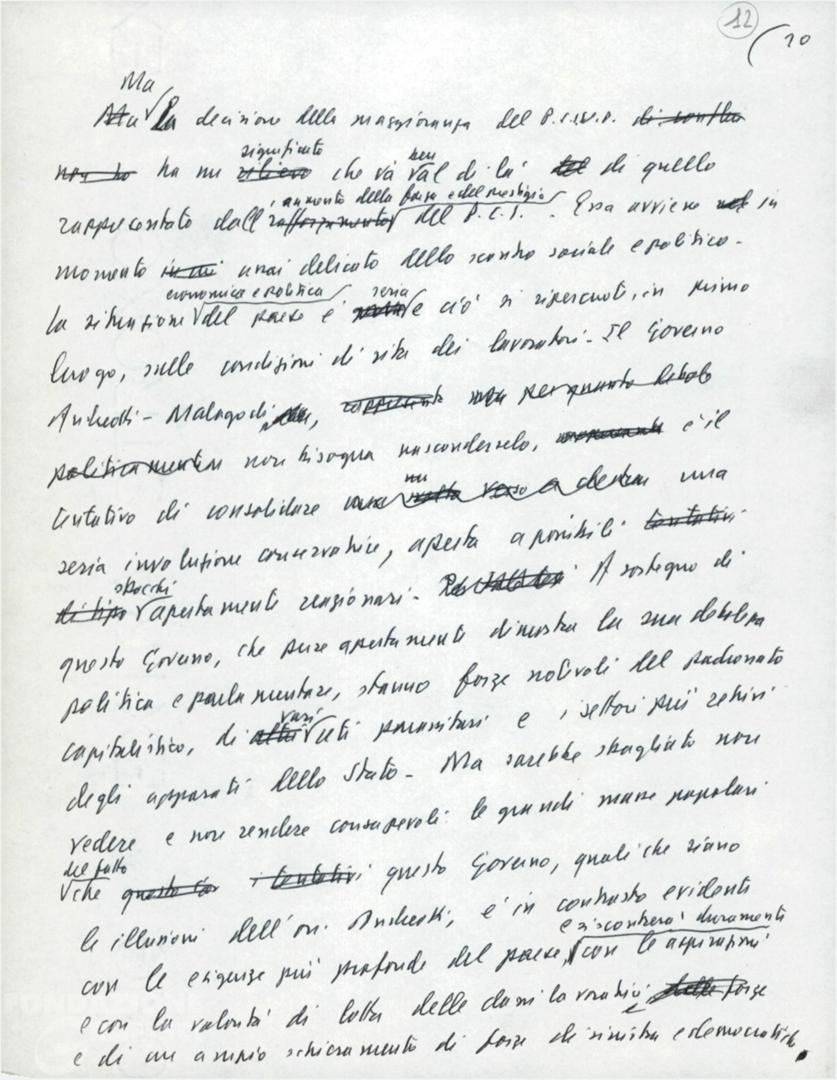 12
20
Ma
Ma La decisione della maggioranza del P.S.I.U.P.
significato ben
non ha ha un rilievo che va al di là del di quello
aumento della forza e del prestigio
rappresentato dall'rafforzamento del P.C.I. Essa avviene in
momento in cui assai delicato dello scontro sociale e politico.
economica e politica seria
La situazione del paese è e ciò si ripercuote, in primo
luogo, sulle condizioni di vita dei lavoratori. Il Governo
Andreotti-Malagodi, rappresenta per quanto debole
politicamente non bisogna nasconderselo, è il
un
tentativo di consolidare una svolta verso a destra una
seria involuzione conservatrice, aperta a possibili tentativi
sbocchi
di tipo apertamente reazionari. A sostegno di
questo Governo, che pure apertamente dimostra la sua debolezza
politica e parlamentare, stanno forze notevoli del padronato
vari
capitalistico, di altri ceti parassitari e i settori più retrivi
degli apparati dello Stato. Ma sarebbe sbagliato non
vedere e non rendere consapevoli le grandi masse popolari
del fatto
che questo tentativi questo Governo, quali che siano
le illusioni dell'on. Andreotti, è in contrasto evidente
e si scontrerà duramente
con le esigenze più profonde del paese, con le aspirazioni
e con la volontà di lotta delle classi lavoratrici delle forze
e
e di un ampio schieramento di forze di sinistra e democratiche.